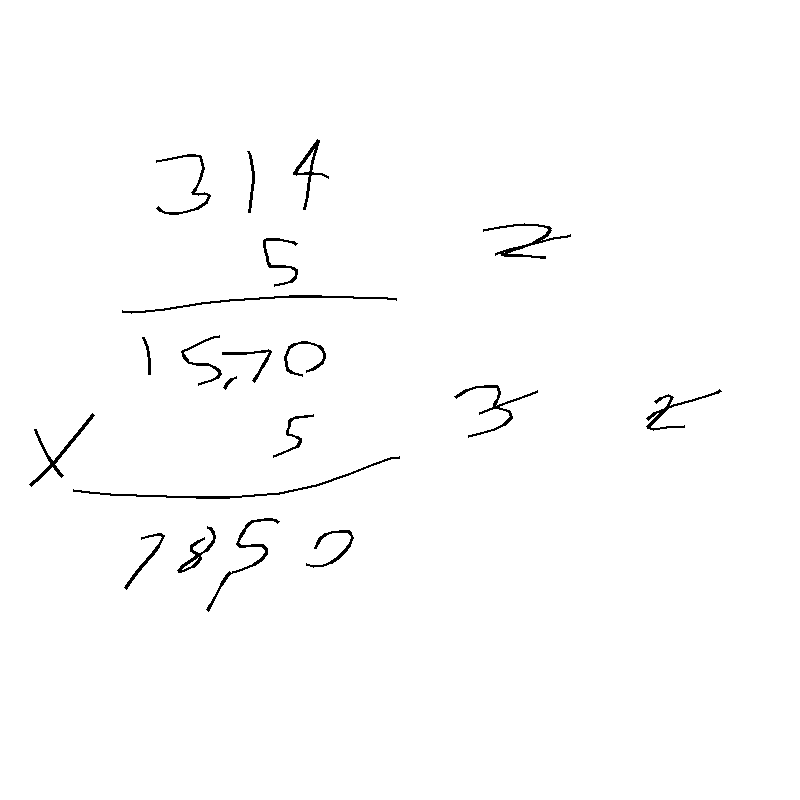 314
5 2
15,70
x 5 3 2
78,50